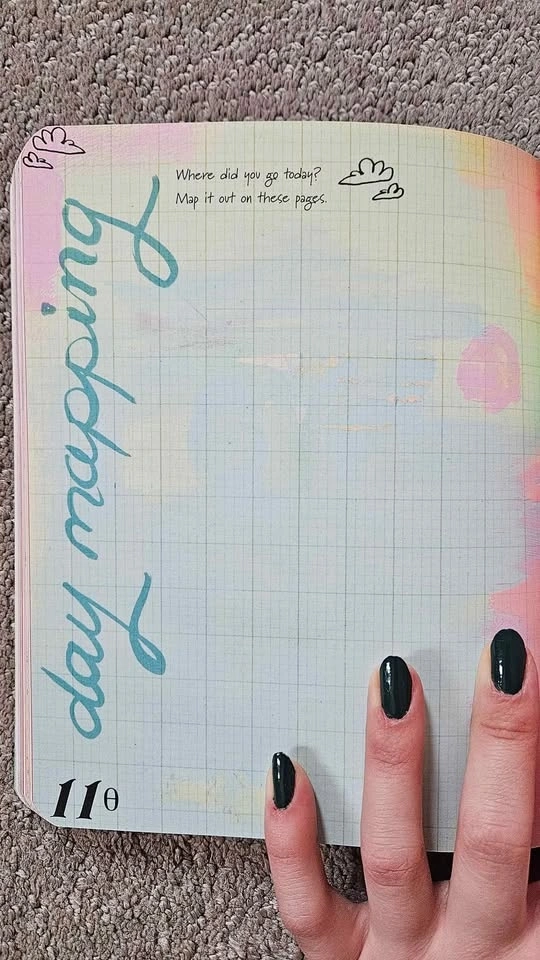 Where did you go today?
Map it out on these pages.
day mapping
110